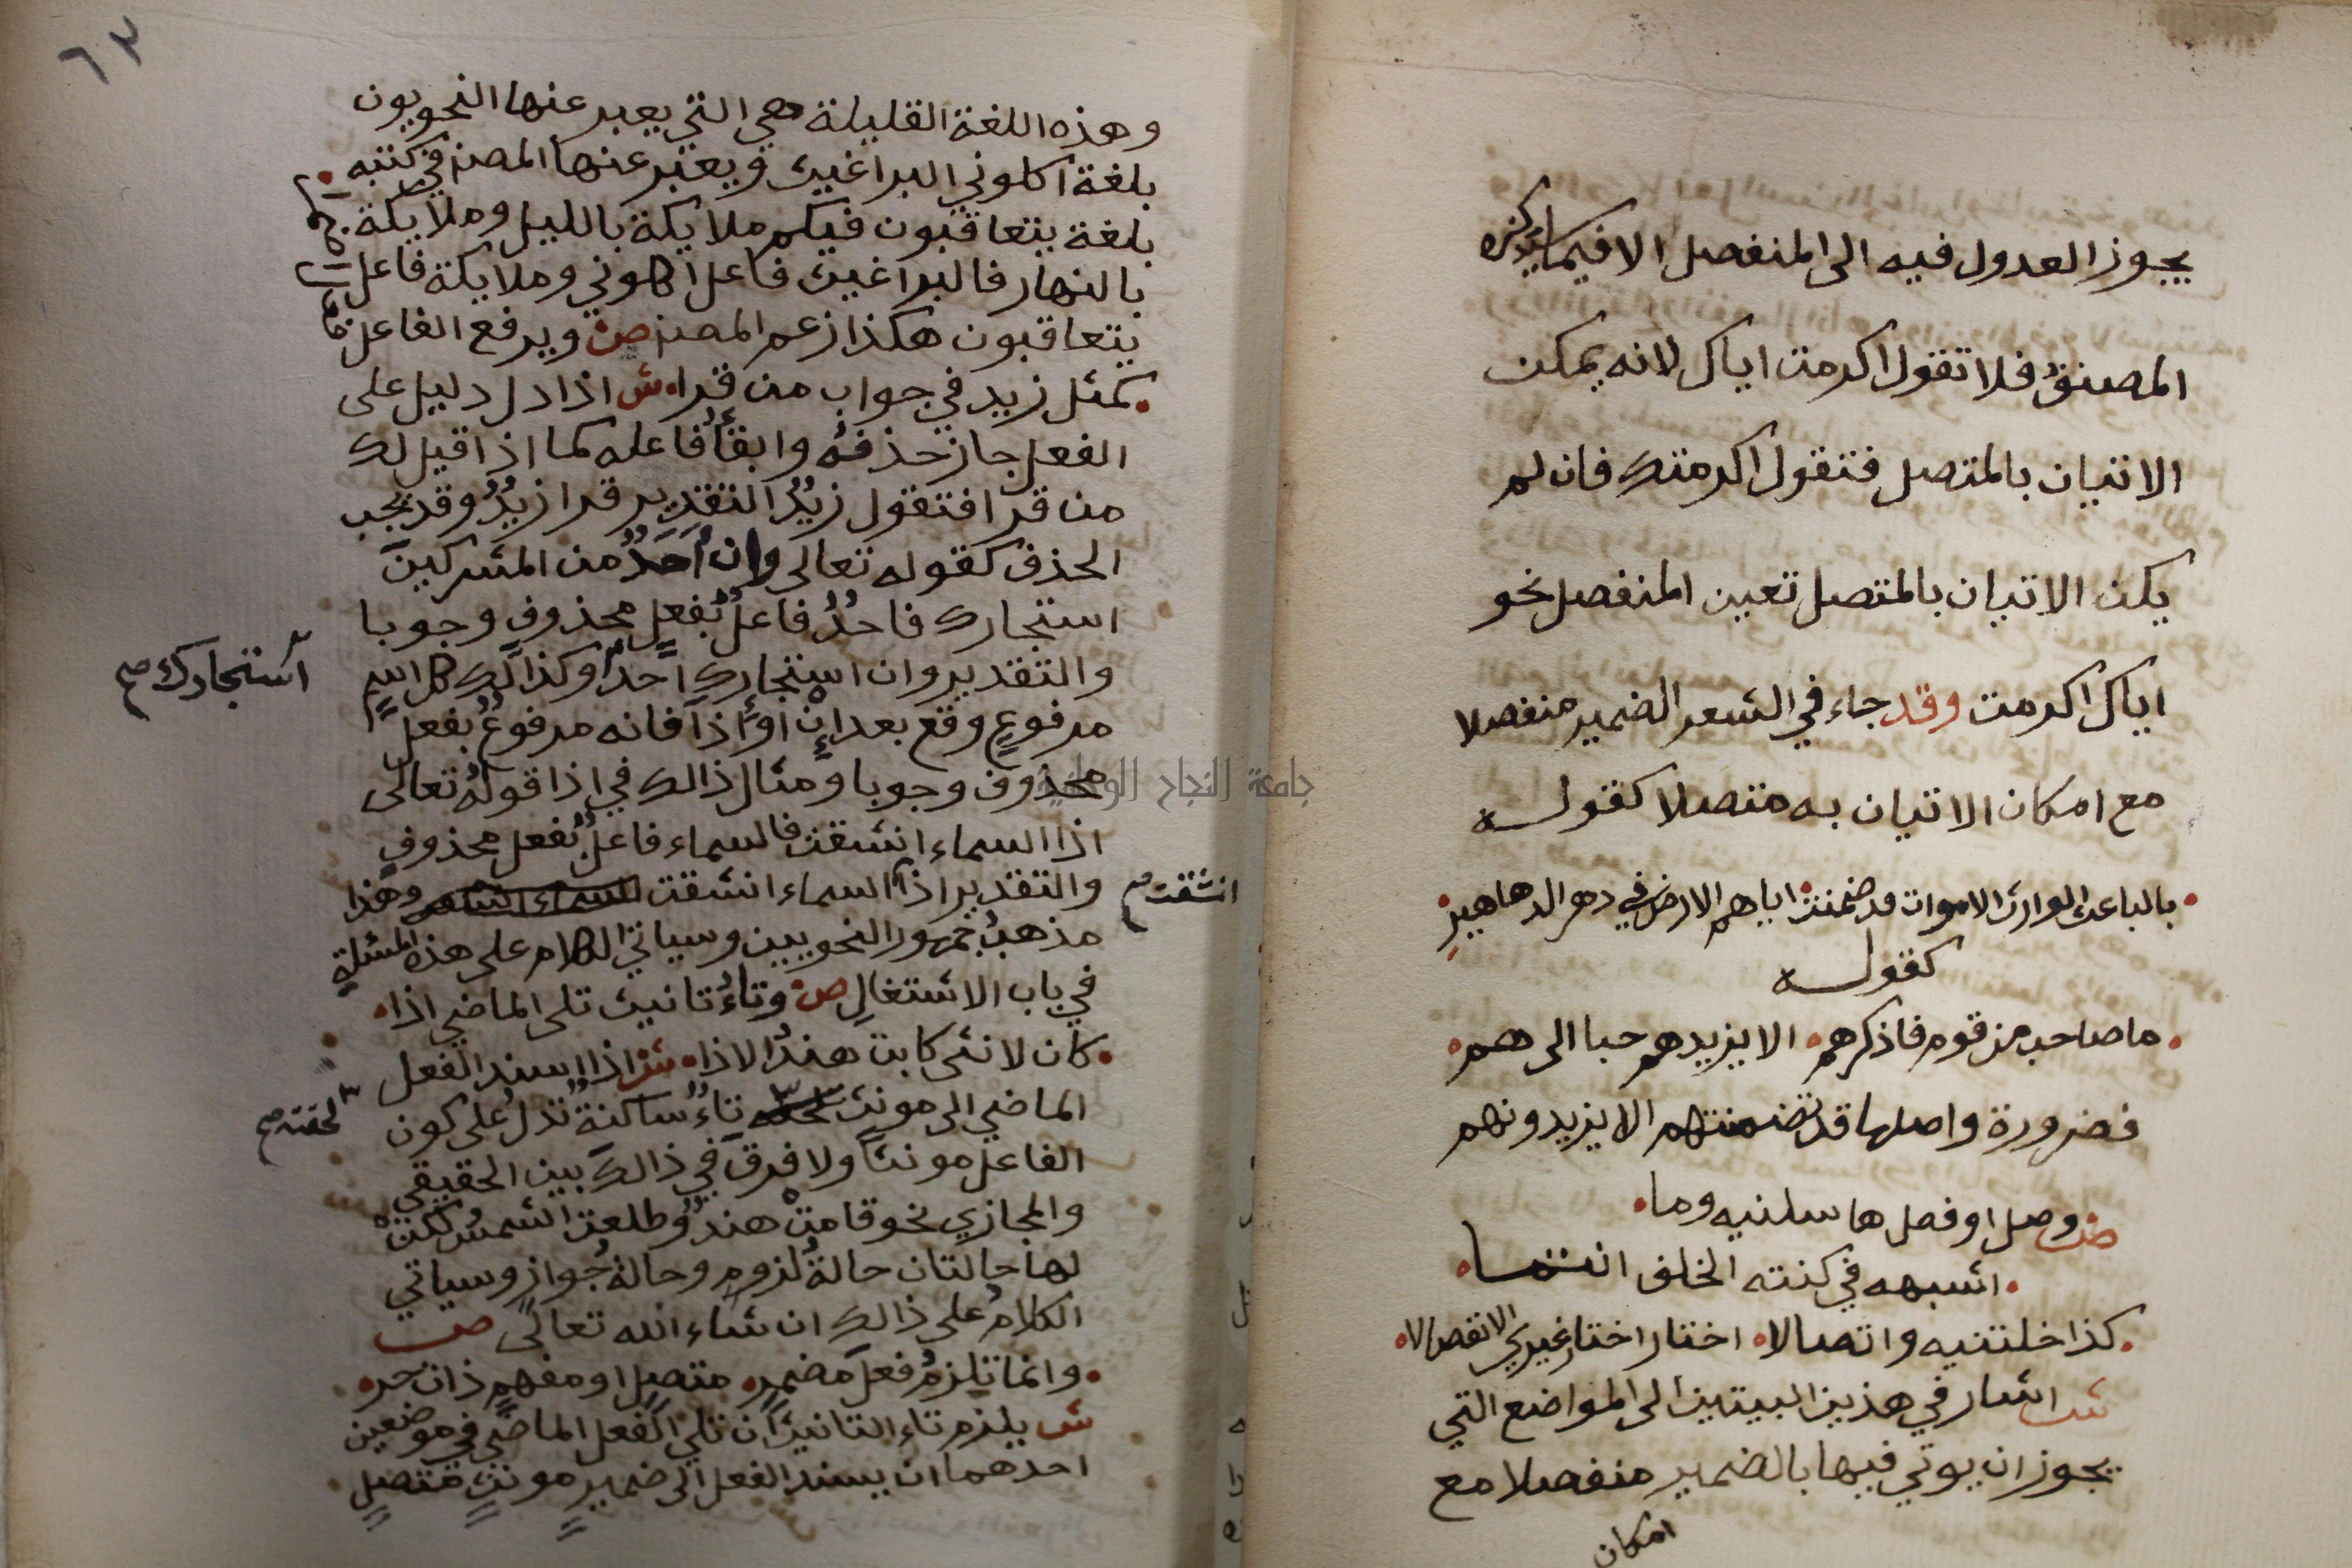 يجوز العدول فيه الى المنفصل الا فيما سيذكره
المصنف فلا تقول اكرمت اياك لانه يمكن
الاتيان بالمتصل فتقول اكرمتك فان لم
يكن الاتيان بالمتصل تعين المنفصل نحو
اياك اكرمت وقد جاء في الشعر الضمير منفصلا
مع امكان الاتيان به متصلا كقوله
بالباعث الوارث الاموات قد ضمنت اياهم الارض في دهر الدهاهير
كقوله
ما صاحب من قوم فاذكرهم الا يزيدهم حبا الى هم
فضرورة واصلها قد تضمنتهم الا يزيدونهم
ص وصل او فصل ها سلنيه وما
اشبهه في كنته الخلف انتما
كذا خلتنيه واتصالا اختار اختار غيري الانفصالا
ش اشار في هذين البيتين الى المواضع التي
يجوز ان يوتي فيها بالضمير منفصلا مع
امكان
٦٣
وهذه اللغة القليلة هي التي يعبر عنها النحويون
بلغة اكلوني البراغيث ويعبر عنها المصنف في كتبه
بلغة يتعاقبون فيكم ملايكة بالليل وملايكة
بالنهار فالبراغيث فاعل اكلوني وملايكة فاعل
يتعاقبون هكذا زعم المصنف ص ويرفع الفاعل
كمثل زيد في جواب من قرا ش اذا دل دليل على
الفعل جاز حذفه وابقأ فاعله كما اذا قيل لك
من قرا فتقول زيدٌ التقدير قرا زيدٌ وقد يجب
الحذف كقوله تعالى وان أحدٌ من المشركين
استجارك فاحدٌ فاعل بفعل محذوف وجوبا
والتقدير وان استجارك احد وكذالك كل اسم
استجارك صح
مرفوعٍ وقع بعد إنْ او إذا فانه مرفوعٌ بفعل
محذوف وجوبا ومثال ذالك في اذا قوله تعالى
اذا السماء انشقت فالسماء فاعل بفعل محذوف
والتقدير اذا السماء انشقت وهذا
انشقت صح
مذهب جمهور النحويين وسياتي الكلام على هذه المسئلة
في باب الاشتغال ص وتاءُ تانيث تلى الماضي اذا
كان لانثى كابت هندُ الاذا ش اذا اسند الفعل
الماضي الى مونث تاءٌ ساكنةٌ تدل على كون
لحقته صح
الفاعل مونثا ولا فرق في ذالك بين الحقيقي
والمجازي نحو قامتْ هندٌ وطلعت الشمس لكن
لها حالتان حالة لزوم وحالة جواز وسياتي
الكلام على ذالك ان شاء الله تعالى ص
وانما تلزم فعل مضمر متصل او مفهم ذات حر
ش يلزم تاء التانيث ان تلي الفعل الماضي في موضعين
احدهما ان يسند الفعل الى ضمير مونث متصل
جامعة النجاح الوطنية